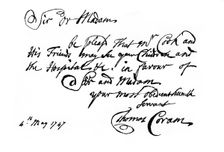 Sir Or Madam
be pleased That Mr Cook and
His Friends may see your Children and
the Hospital &c. in favour of
Sir and Madam
your most obedient humble
Servant
Thomas Coram
4th May 1747